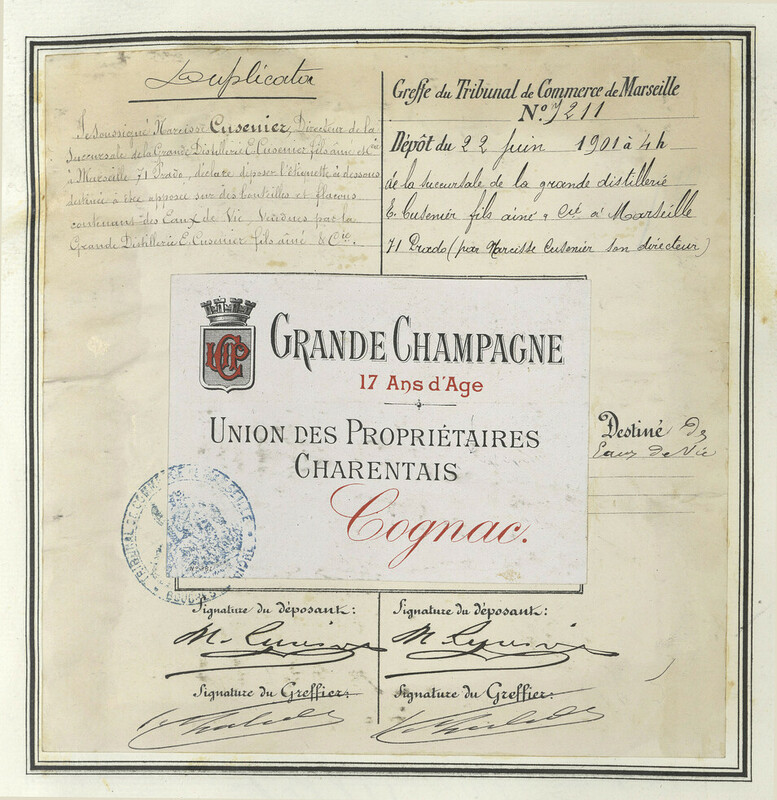 Duplicata
Je soussigné Narcisse Cusenier, Directeur de la
Succursale de la Grande Distillerie E. Cusenier fils aîné et Cie
à Marseille 71 Prado, déclare déposer l'étiquette ci-dessous
destinée à être apposée sur des bouteilles et flacons
contenant des Eaux de Vie, vendues par la
Grande Distillerie E. Cusenier fils aîné & Cie.
Greffe du Tribunal de Commerce de Marseille
No. 7211
Dépôt du 22 juin 1901 à 4h
de la succursale de la grande distillerie
E. Cusenier fils aîné & Cie à Marseille
71 Prado (par Narcisse Cusenier son directeur)
HCP
GRANDE CHAMPAGNE
17 Ans d'Age
UNION DES PROPRIÉTAIRES
CHARENTAIS
Cognac.
Destiné des
Eaux de Vie
TRIBUNAL DE COMMERCE DE MARSEILLE
Signature du déposant:
Signature du déposant:
Signature du Greffier:
Signature du Greffier: